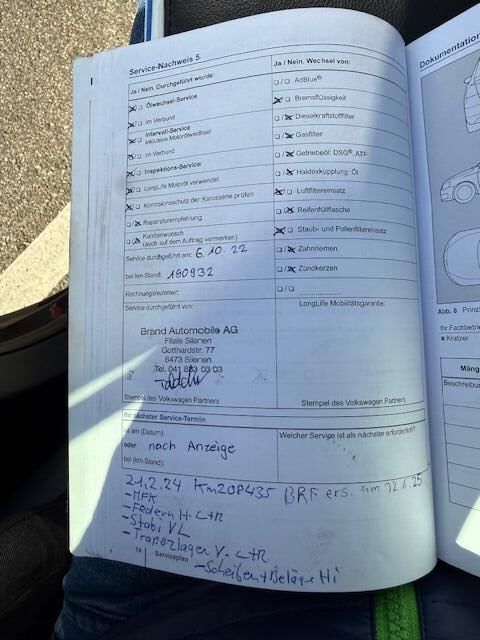 Service-Nachweis 5
Ja / Nein. Durchgeführt wurde:
Ölwechsel-Service
im Verbund
Intervall-Service
inklusive Motorölwechsel
im Verbund
Inspektions-Service
LongLife Motoröl verwendet
Korrosionsschutz der Karosserie prüfen
Reparaturempfehlung
Kundenwunsch
(auch auf dem Auftrag vermerken)
Service durchgeführt am: 6.10.22
bei km-Stand: 180932
Rechnungsnummer:
Service durchgeführt von:
Brand Automobile AG
Filiale Silenen
Gotthardstr. 77
6473 Silenen
Tel. 041 883 03 03
Stempel des Volkswagen Partners
Ja / Nein. Wechsel von:
AdBlue®
Bremsflüssigkeit
Dieselkraftstofffilter
Gasfilter
Getriebeöl: DSG®, ATF
Haldexkupplung: Öl
Luftfiltereinsatz
Reifenfüllflasche
Staub- und Pollenfiltereinsatz
Zahnriemen
Zündkerzen
LongLife Mobilitätsgarantie:
Stempel des Volkswagen Partners
Ihr nächster Service-Termin
ist am (Datum):
oder nach Anzeige
bei (km-Stand):
Welcher Service ist als nächster erforderlich?
21.2.24 Km208435 BRF ers. am 12.6.25
-MFK
-Federn H. L+R
-Stabi VL
-Trapezlager V. L+R
-Scheiben + Beläge Hi
14 Serviceplan
Dokumentation
Abb. 8 Prinzi
Ihr Fachbetrie
x Kratzer
Mäng
Beschreibu